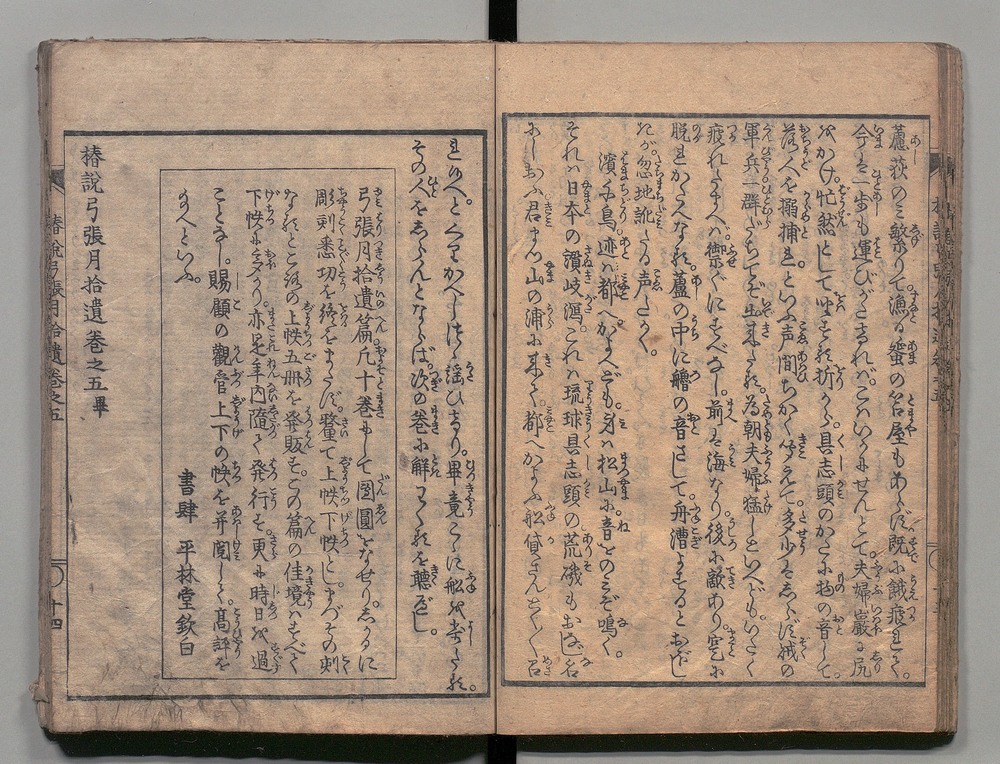 蘆荻のみ繁りて漁る蜑の苫屋もあらず。既に餓疲れて。
今は一歩も運びがたければ。こはいかにせんとて。夫婦巌に尻
をかけ。忙然として
折から。具志頭のかたに物の音して。
落人を搦捕れといふ声間ちかく聞えて。多少はしらず。賊の
軍兵一群たちて出来たり。為朝夫婦猛しといへども。いたく
疲れたまへば。禦ぐにすべなし。前は海なり。後に敵あり。
脱れかたへなき。蘆の中に艪の音さして。舟漕よするとおぼし
が。忽地訛たる声たかく。
濱千鳥迹は都へかよへども。身は松山に音をのみぞ鳴く。
それは日本の讃岐瀉。これは琉球具志頭の荒磯もおなじ名
にしあふ君まつ山の浦に来て。都へかよふ船貸さんとく召
れ給へ。とくりかへしつつ謡ひけり。畢竟ここに船を寄たる。
その人をしらんとならば。次の巻に解わくるを聴ねかし。
弓張月拾遺篇凡十巻にして團圓をなせり。しかるに
彫刻悉功を終るまたず。釐て上帙下帙とし。まづその刻
なるところの上帙五冊を発販す。この篇の佳境はすべて
下帙にあり。亦是年内隨て発行す。更に時日を過
ことなし。賜顧の觀官上下の帙を并閲して。高評を
給へといふ。
書肆 平林堂欽白
椿說弓張月拾遺巻之五畢
椿說弓張月拾遺巻之五
十四